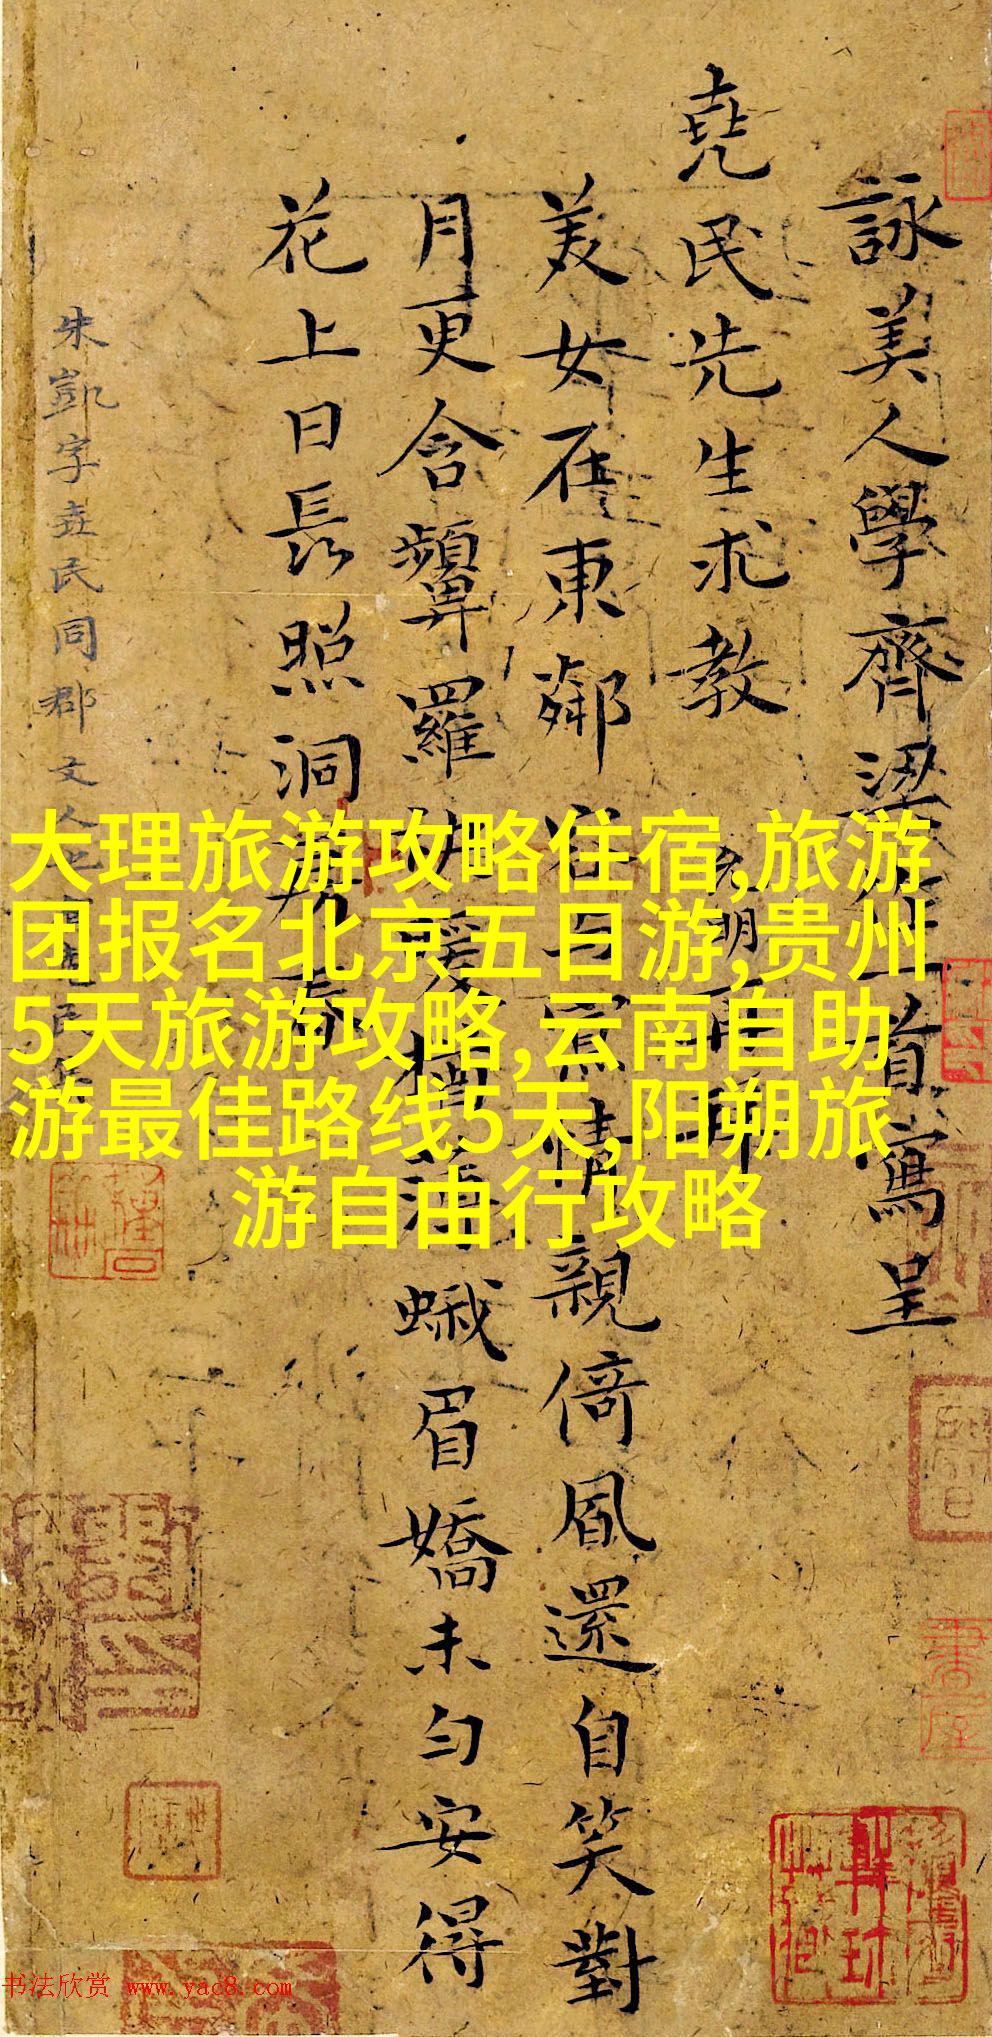 詠美人學齊梁体一首寫呈
堯民先生求教
元明再拜
美女在東鄰 容與寫情親倚風還自笑對
月更含顰羅 煖 蛾眉嬌未勻安得
花上日長照洞房春
朱凱字堯民同郡文人也
大理旅游攻略住宿,旅游
团报名北京五日游,贵州
5天旅游攻略,云南自助
游最佳路线5天,阳朔旅
游自由行攻略
书法欣赏 www.yac8.com